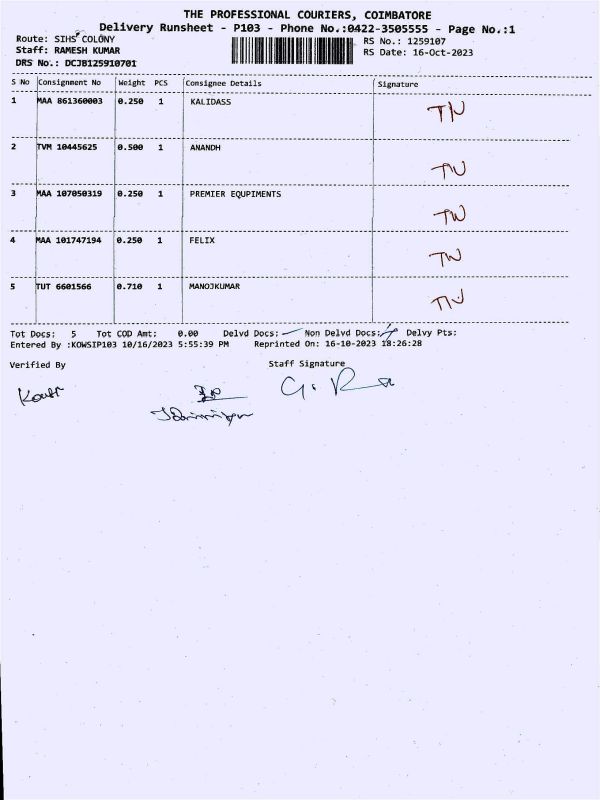 THE PROFESSIONAL COURIERS, COIMBATORE
Delivery Runsheet - P103 - Phone No.:0422-3505555 - Page No.:1
Route: SIHS COLONY RS No.: 1259107
Staff: RAMESH KUMAR RS Date: 16-Oct-2023
DRS No.: DCJB125910701
S No Consignment No Weight PCS Consignee Details Signature
1 MAA 861360003 0.250 1 KALIDASS TN
2 TVM 10445625 0.500 1 ANANDH TN
3 MAA 107050319 0.250 1 PREMIER EQUPIMENTS TN
4 MAA 101747194 0.250 1 FELIX TN
5 TUT 6601566 0.710 1 MANOJKUMAR TN
Tot Docs: 5 Tot COD Amt: 0.00 Delvd Docs: Non Delvd Docs: Delvy Pts:
Entered By :KOWSIP103 10/16/2023 5:55:39 PM Reprinted On: 16-10-2023 18:26:28
Verified By Staff Signature